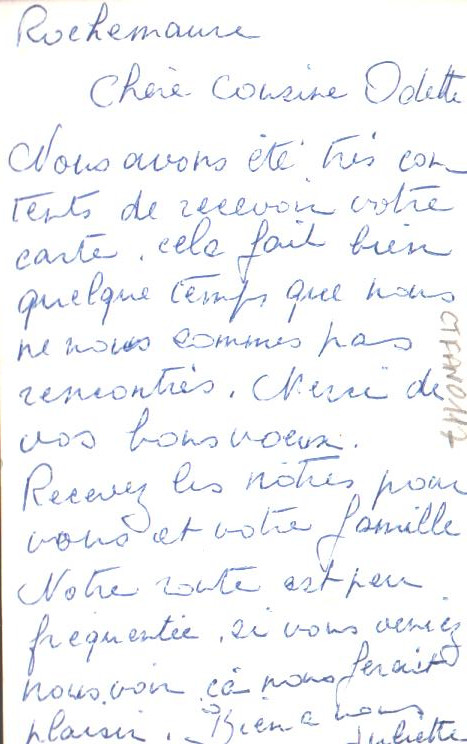 Rochemaure
Chère Cousine Odette
Nous avons été très con
tents de recevoir votre
carte. cela fait bien
quelque temps que nous
ne nous sommes pas
rencontrés. Merci de
vos bons voeux.
Recevez les nôtres pour
vous et votre famille
Notre route est peu
frequentée, si vous veniez
nous voir çà nous ferait
plaisir. Bien a vous
Juliette